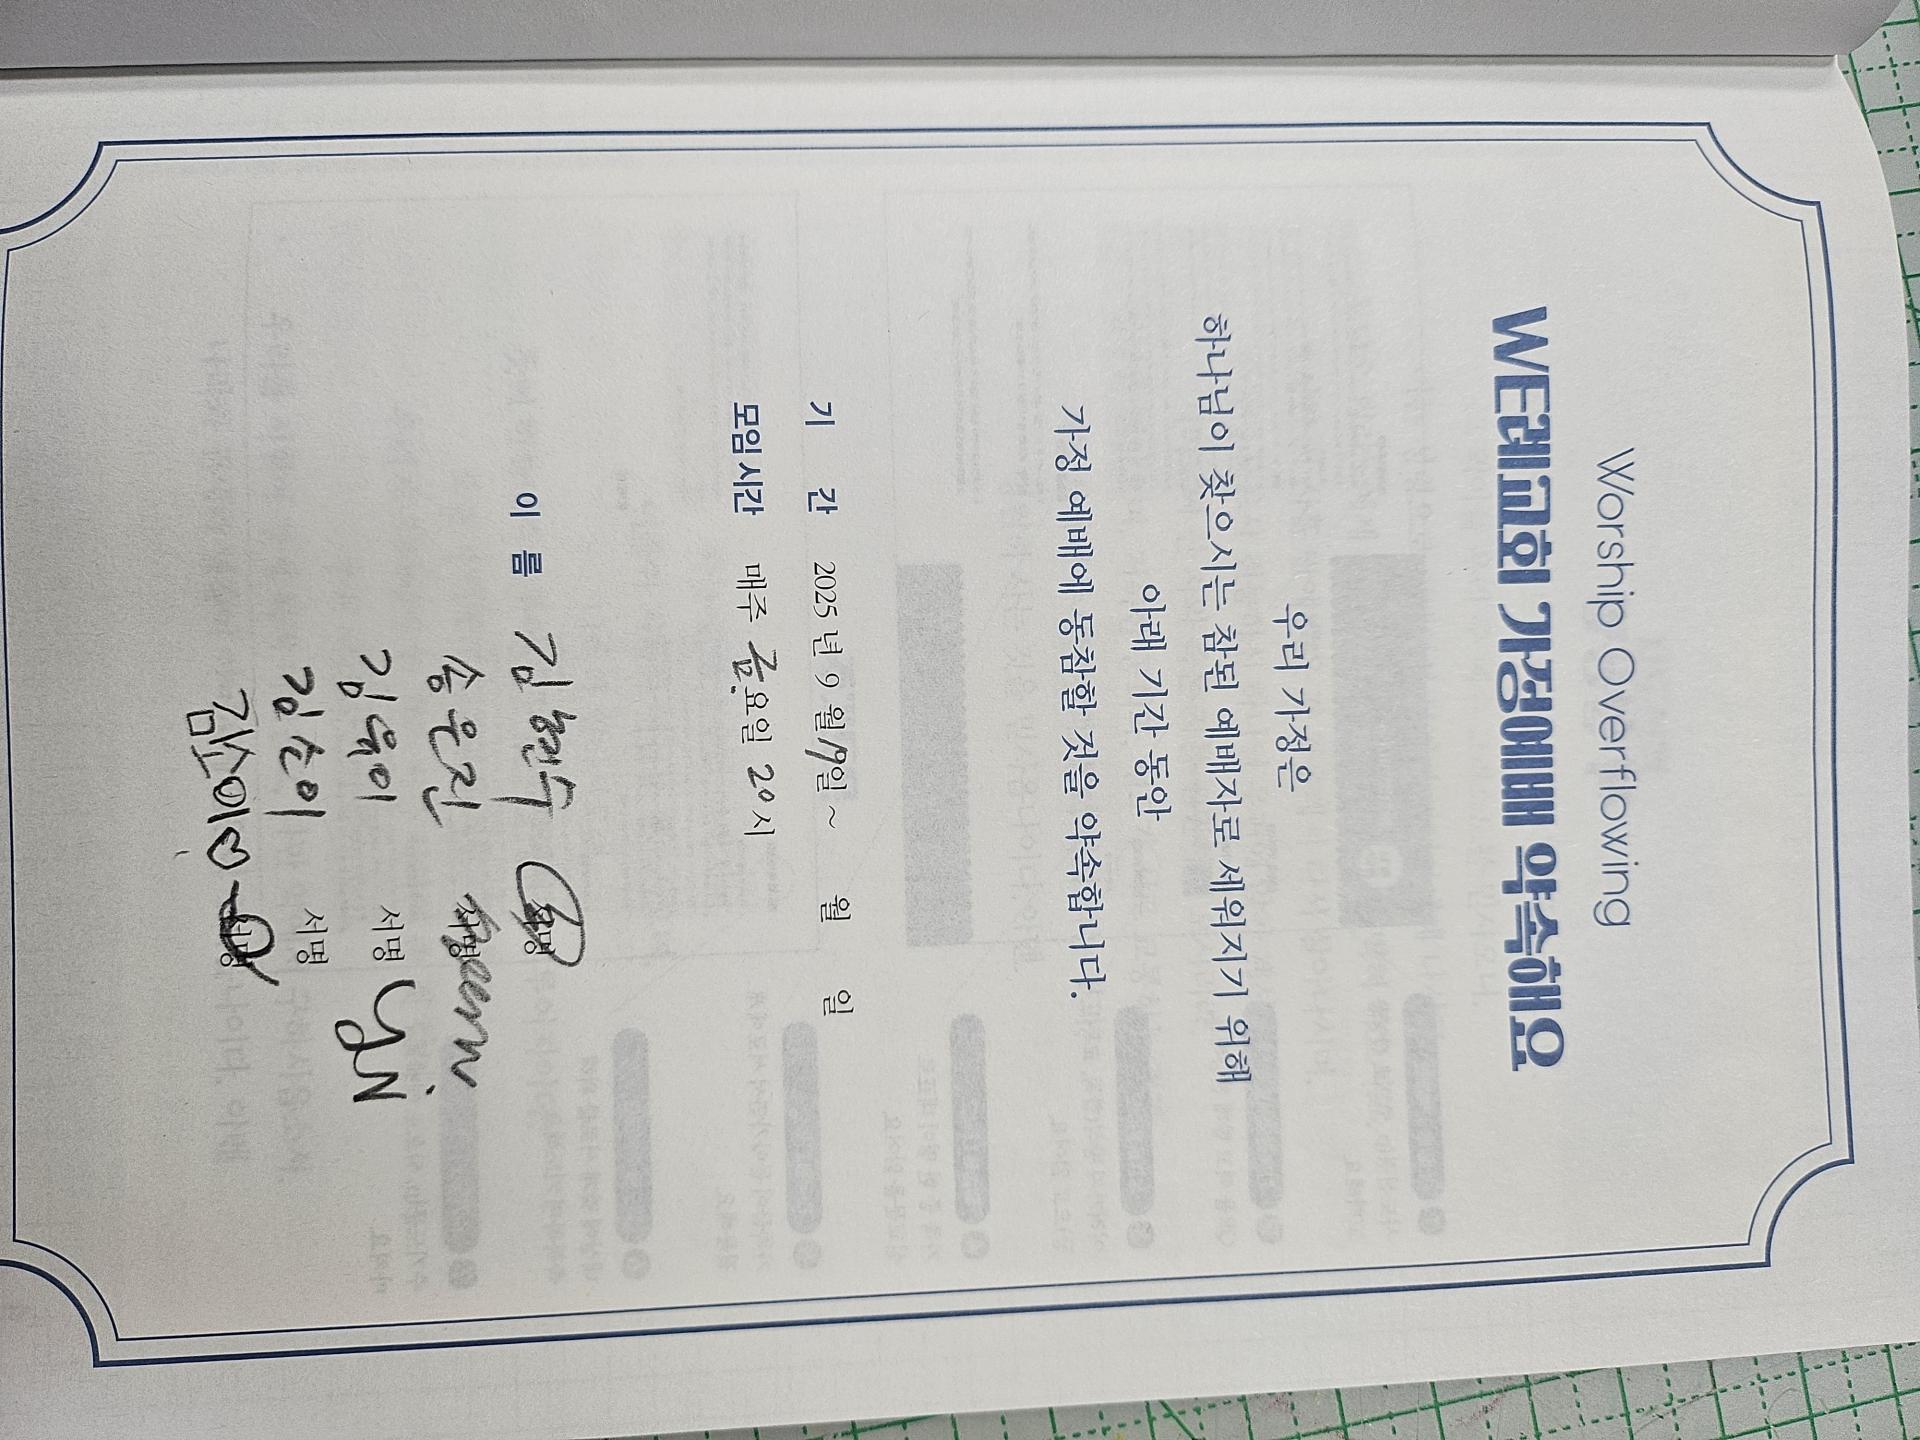 Worship Overflowing
WE레교회 가정예배 약속해요
우리 가정은
하나님이 찾으시는 참된 예배자로 세워지기 위해
아래 기간 동안
가정 예배에 동참할 것을 약속합니다.
기 간 2025 년 9 월 19일 ~ 월 일
모임 시간 매주 금요일 20시
이 름 김현수 서명
송은진 서명
김유이 서명 YuN
김은이 서명
김소이♡ 서명